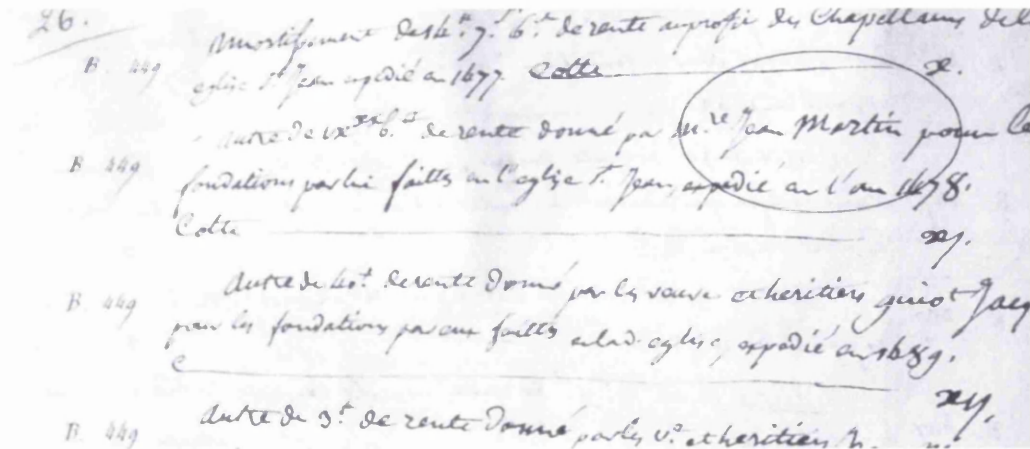 26.
B. 449 Amortissement de 14.ᵗᵗ 7.ˢ 6.ᵈ de rente au profit des Chapellains de l
eglise S.ᵗ Jean expedié en 1677. Cotte x.
B. 449 autre de rente donné par M.ʳᵉ Jean Martin pour les
fondations par lui faittes en l'eglise S.ᵗ Jean, expedié en l'an 1678.
Cotte xj.
B. 449 autre de rente donné par les veuve et heritiers guiot Jacq
pour les fondations par eux faittes a lad. eglise, expedié en 1689.
C xij.
B. 449 autre de 3.ᵗ de rente donné par les v.ᵉ et heritiers